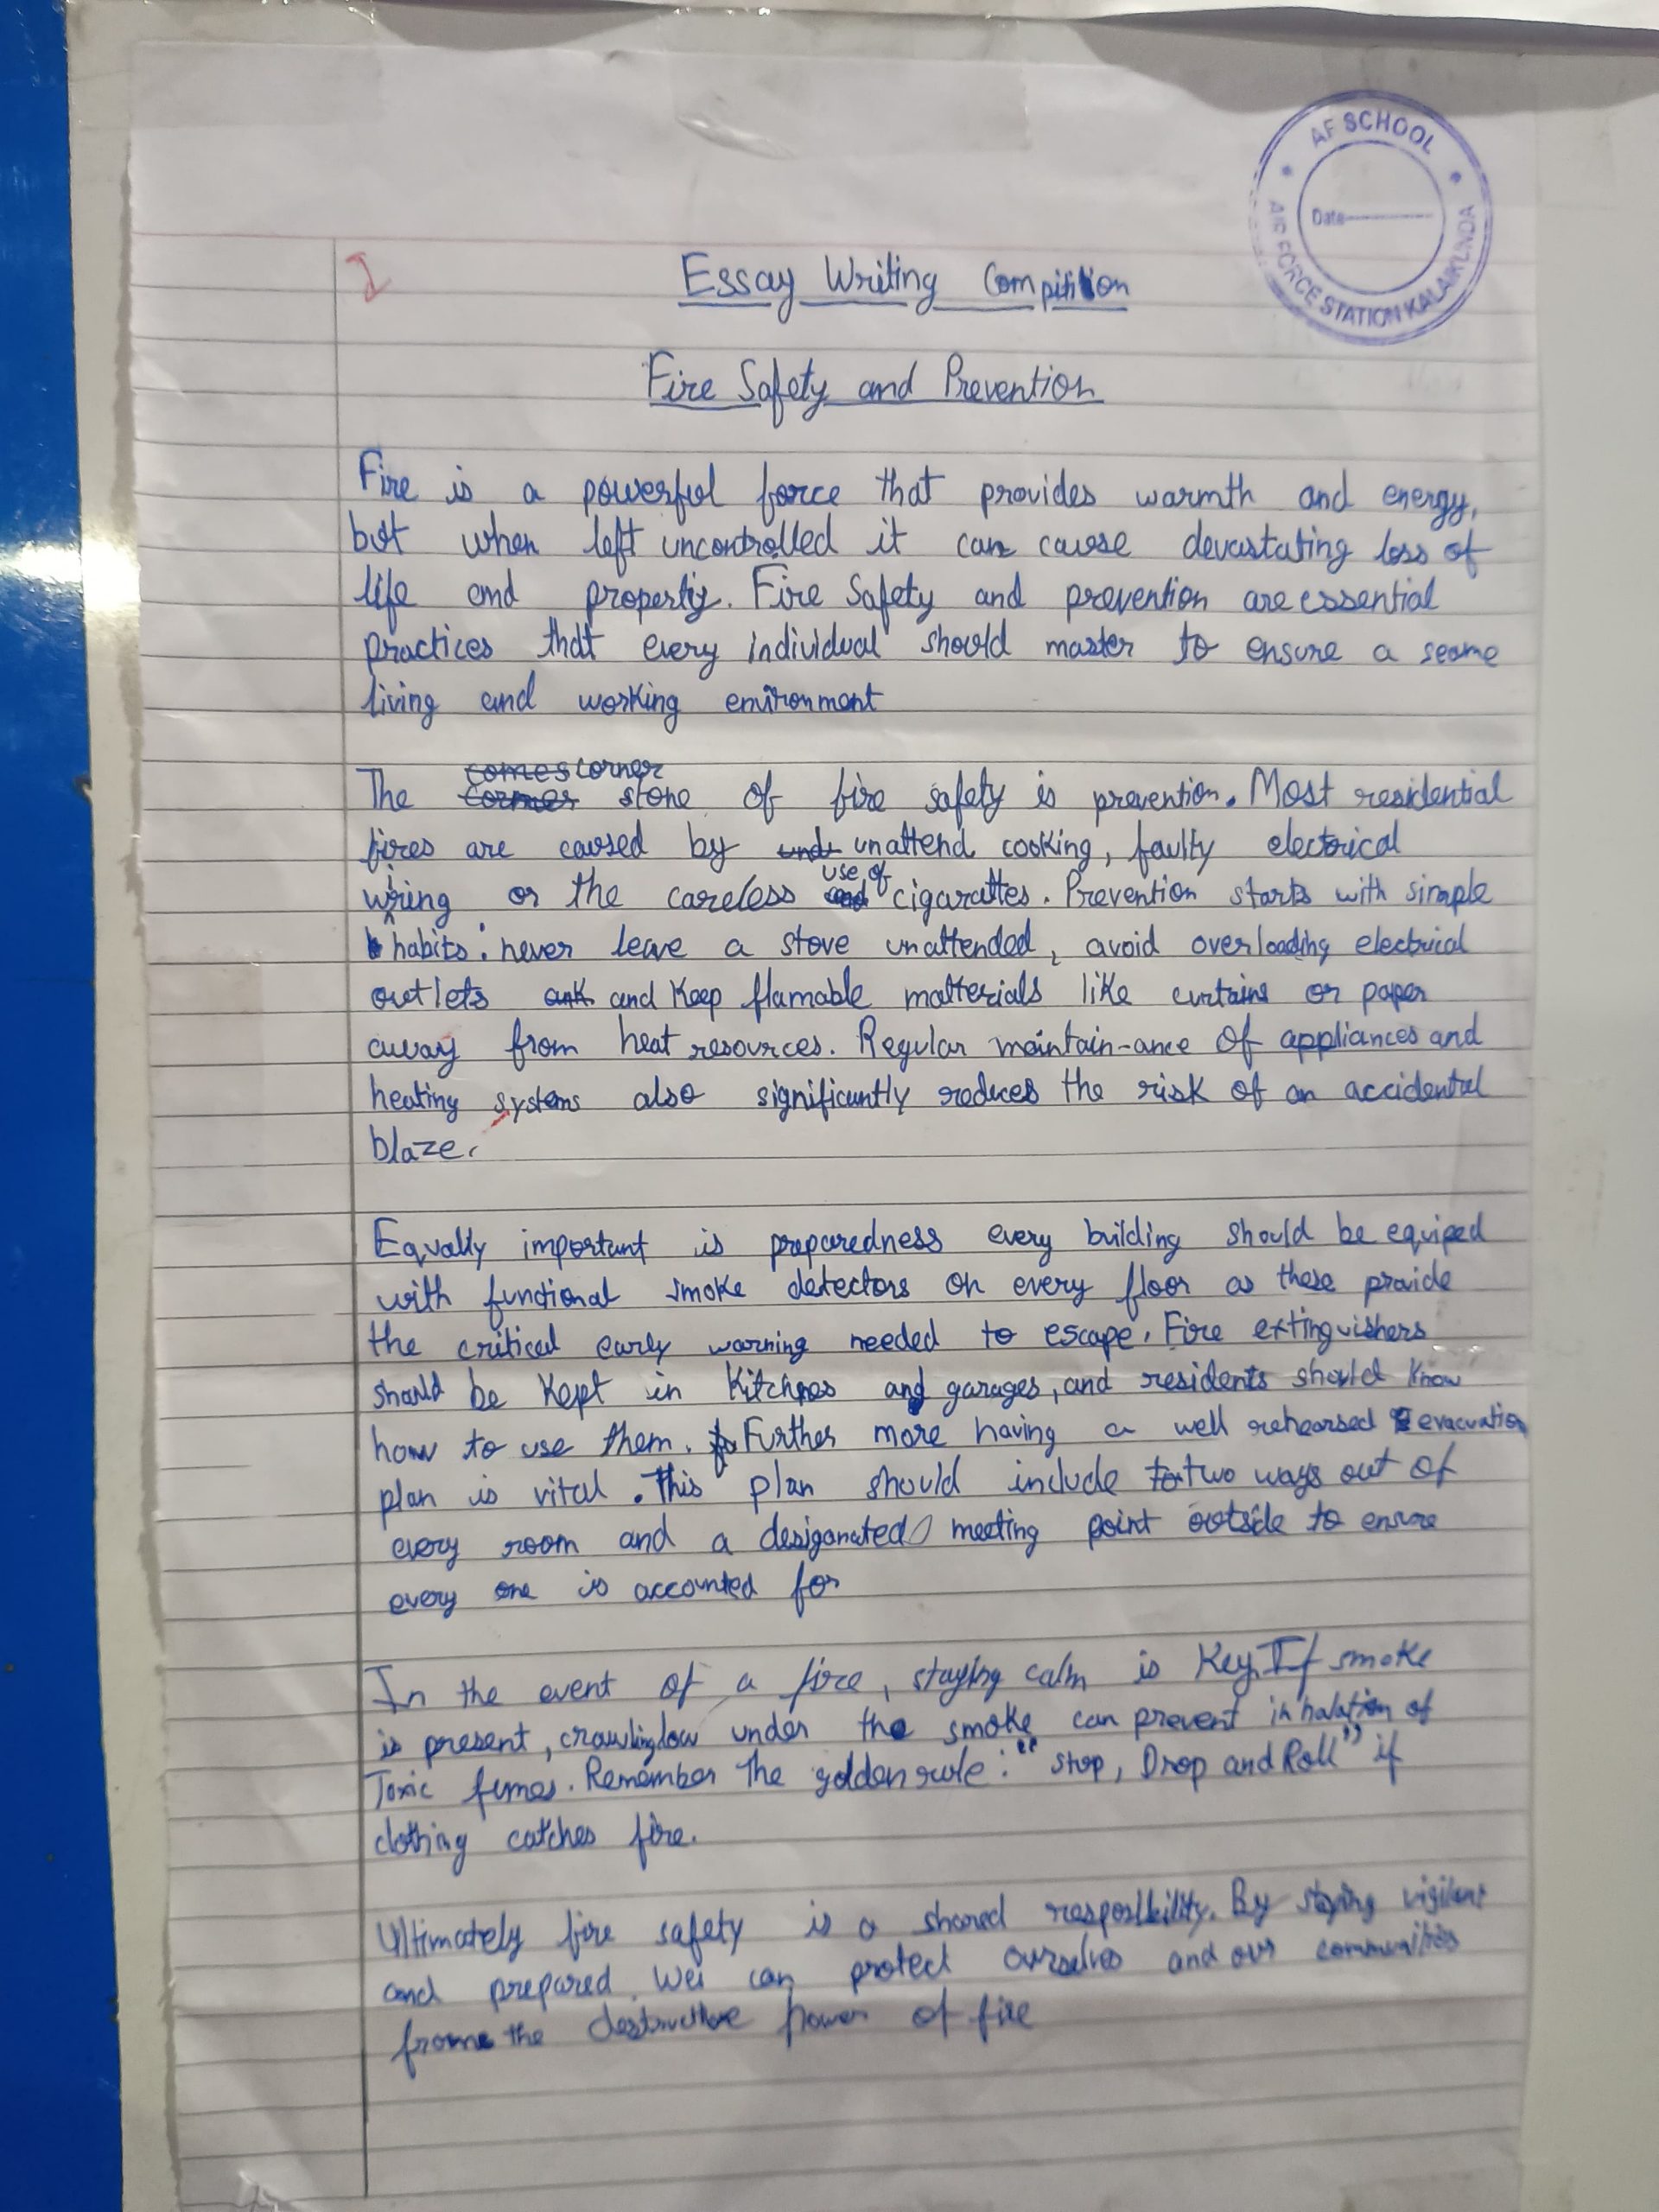 AF SCHOOL
AIR FORCE STATION KALAIKUNDA
Date
I
Essay Writing Compitition
Fire Safety and Prevention
Fire is a powerful force that provides warmth and energy,
but when left uncontrolled it can cause devastating loss of
life and property. Fire Safety and prevention are essential
practices that every individual should master to ensure a
living and working environment
comes corner
The corner stone of fire safety is prevention. Most residential
fires are caused by unattend cooking, faulty electrical
use of
wiring or the careless cigarattes. Prevention starts with simple
habits: never leave a stove unattended, avoid overloading electrical
outlets and Keep flamable matterials like curtains or paper
away from heat resources. Regular maintain-ance of appliances and
heating systems also significantly reduces the risk of an accidental
blaze.
Equally important is preparedness every building should be equiped
with functional smoke detectors on every floor as these provide
the critical early warning needed to escape. Fire extinguishers
should be Kept in and garages, and residents should know
how to use them. Further more having a well rehearsed evacuation
plan is vital. This plan should include two ways out of
every room and a desiganated meeting point outside to ensure
every one is accounted for
In the event of a fire, staying calm is Key. If smoke
is present, crawling low under the smoke can prevent inhalation of
Toxic fumes. Remember The golden rule: "stop, Drop and Roll" if
clothing catches fire.
Ultimately fire safety is a shared By staying vigilant
and prepared. can protect ourselves and our communities
from the destructive power of fire